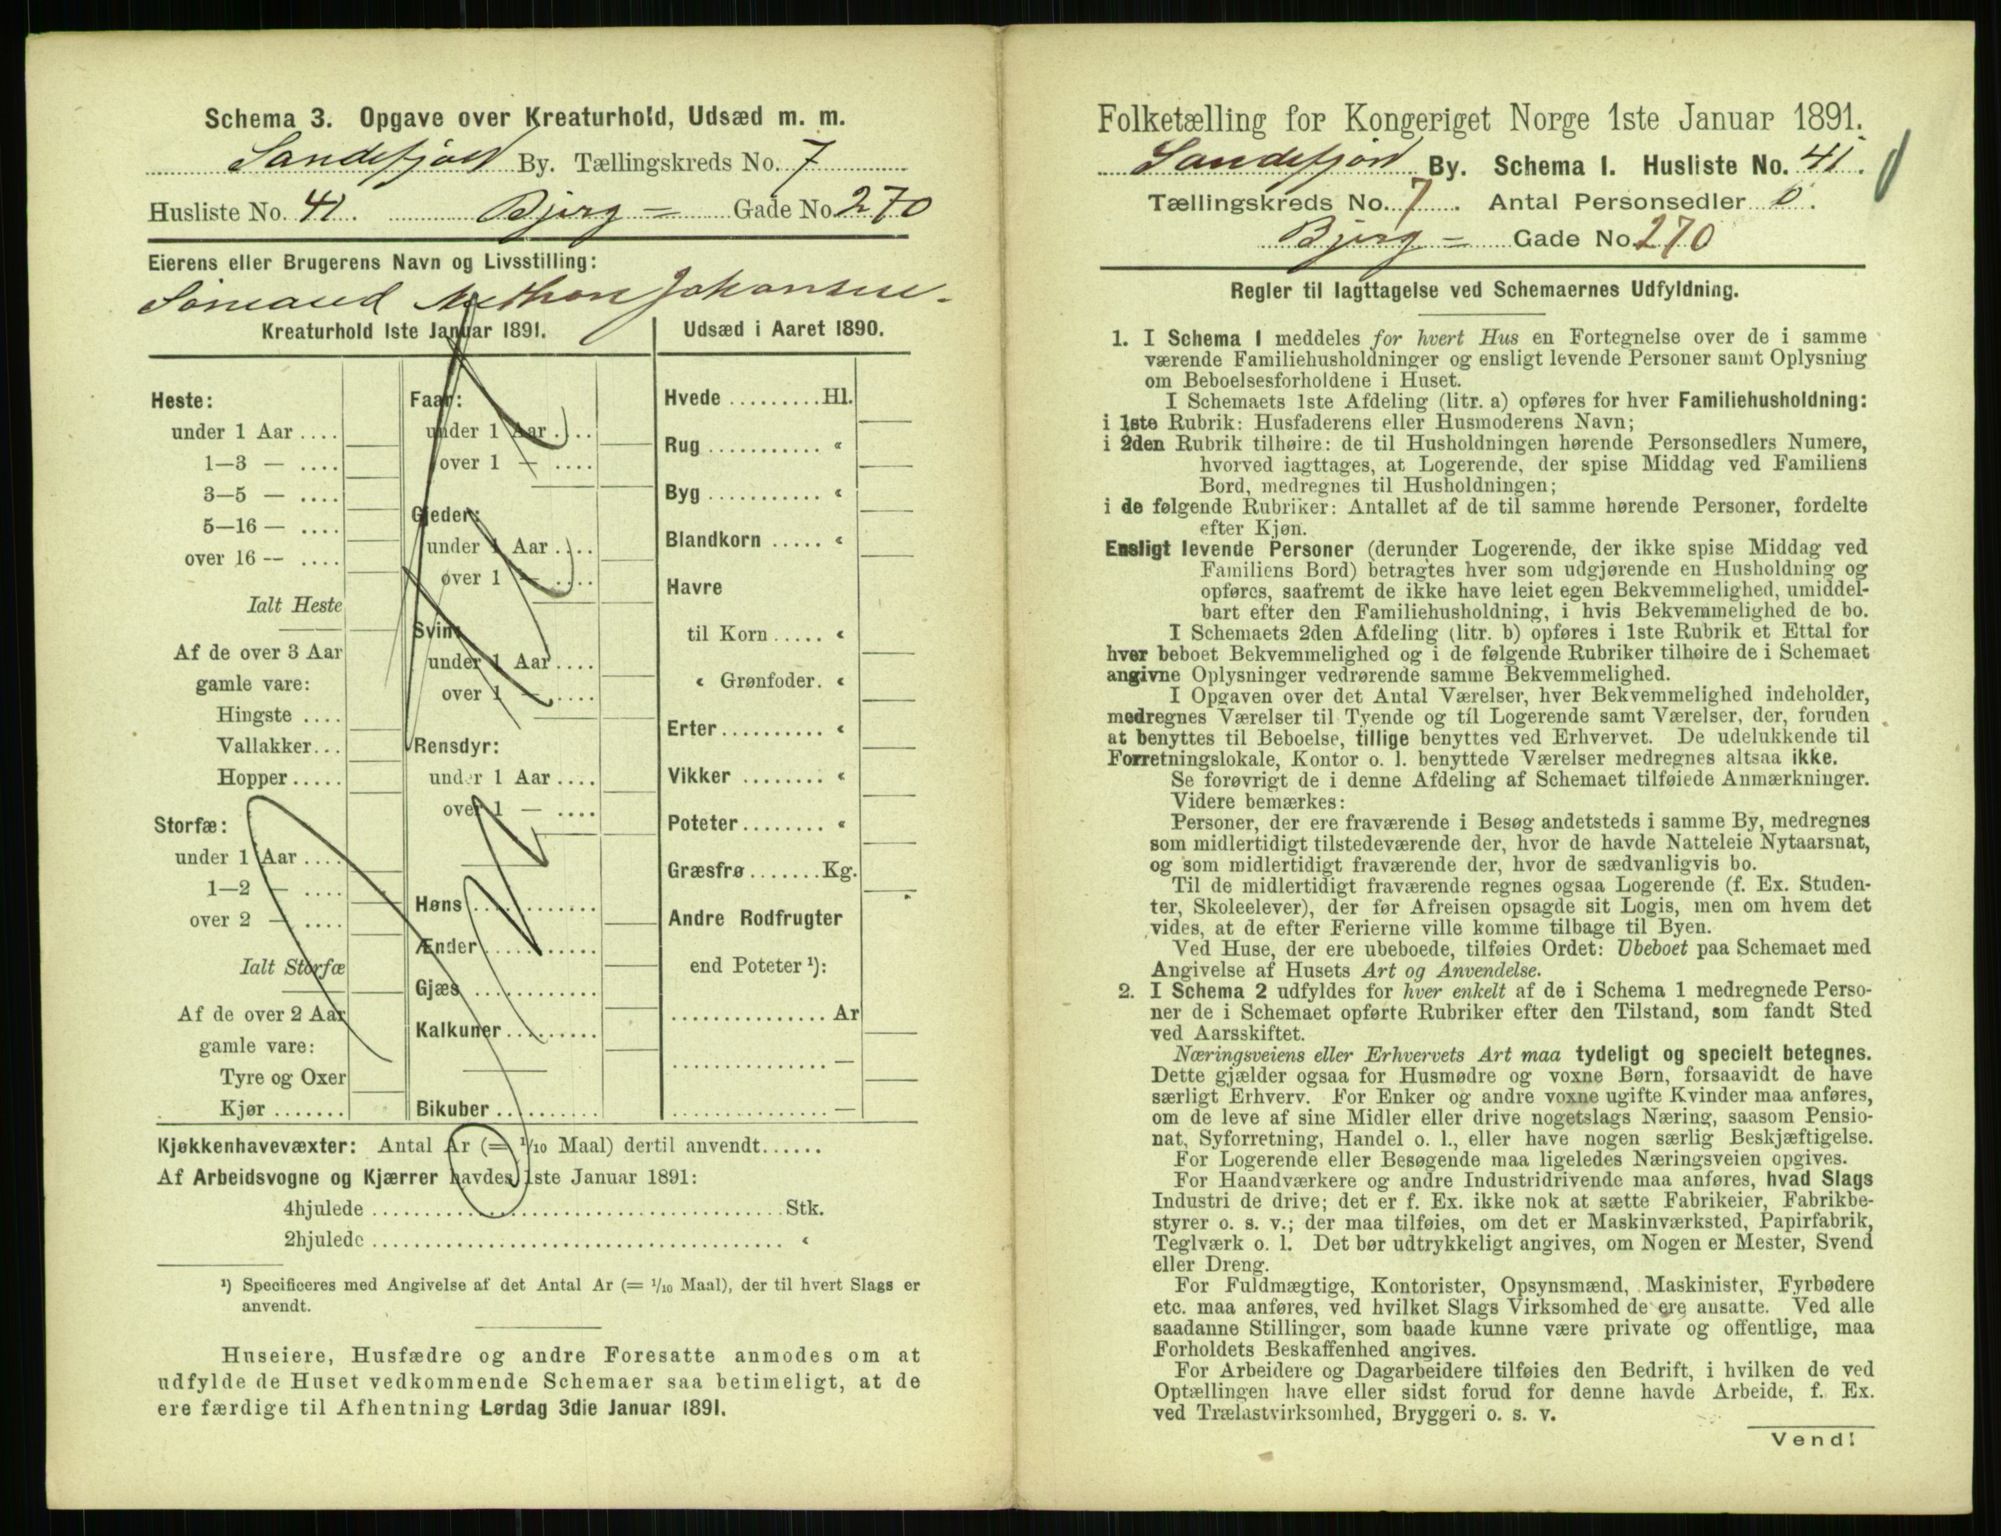 Schema 3. Opgave over Kreaturhold, Udsæd m. m.
Sandefjord By. Tællingskreds No. 7
Husliste No. 41. Bjerg = Gade No. 270
Eierens eller Brugerens Navn og Livsstilling:
Sømand Anthon Johansen.
Kreaturhold 1ste Januar 1891.
Heste:
under 1 Aar ....
1—3 — ....
3—5 — ....
5—16 — ....
over 16 — ....
Ialt Heste
Af de over 3 Aar
gamle vare:
Hingste ....
Vallakker...
Hopper.....
Storfæ:
under 1 Aar ....
1—2 — ....
over 2 — ....
Ialt Storfæ
Af de over 2 Aar
gamle vare:
Tyre og Oxer
Kjør .......
Faar:
under 1 Aar ....
over 1 — ....
Gjeder:
under 1 Aar ....
over 1 — ....
Svin:
under 1 Aar ....
over 1 — ....
Rensdyr:
under 1 Aar ....
over 1 — ....
Høns ............
Ænder ............
Gjæs ............
Kalkuner .........
Bikuber ..........
Udsæd i Aaret 1890.
Hvede ......... Hl.
Rug ........... «
Byg ........... «
Blandkorn ..... «
Havre
til Korn ..... «
« Grønfoder. «
Erter.......... «
Vikker ........ «
Poteter........ «
Græsfrø ....... Kg.
Andre Rodfrugter
end Poteter ¹):
............... Ar
............... —
............... —
Kjøkkenhavevæxter: Antal Ar (= 1/10 Maal) dertil anvendt......
Af Arbeidsvogne og Kjærrer havdes 1ste Januar 1891:
4hjulede ........................................ Stk.
2hjulede ........................................ «
¹) Specificeres med Angivelse af det Antal Ar (= 1/10 Maal), der til hvert Slags er
anvendt.
Huseiere, Husfædre og andre Foresatte anmodes om at
udfylde de Huset vedkommende Schemaer saa betimeligt, at de
ere færdige til Afhentning Lørdag 3die Januar 1891.
Folketælling for Kongeriget Norge 1ste Januar 1891.
Sandefjord By. Schema 1. Husliste No. 41.
Tællingskreds No. 7. Antal Personsedler 0.
Bjerg = Gade No. 270
Regler til Iagttagelse ved Schemaernes Udfyldning.
1. I Schema 1 meddeles for hvert Hus en Fortegnelse over de i samme
værende Familiehusholdninger og ensligt levende Personer samt Oplysning
om Beboelsesforholdene i Huset.
I Schemaets 1ste Afdeling (litr. a) opføres for hver Familiehusholdning:
i 1ste Rubrik: Husfaderens eller Husmoderens Navn;
i 2den Rubrik tilhøire: de til Husholdningen hørende Personsedlers Numere,
hvorved iagttages, at Logerende, der spise Middag ved Familiens
Bord, medregnes til Husholdningen;
i de følgende Rubriker: Antallet af de til samme hørende Personer, fordelte
efter Kjøn.
Ensligt levende Personer (derunder Logerende, der ikke spise Middag ved
Familiens Bord) betragtes hver som udgjørende en Husholdning og
opføres, saafremt de ikke have leiet egen Bekvemmelighed, umiddel-
bart efter den Familiehusholdning, i hvis Bekvemmelighed de bo.
I Schemaets 2den Afdeling (litr. b) opføres i 1ste Rubrik et Ettal for
hver beboet Bekvemmelighed og i de følgende Rubriker tilhøire de i Schemaet
angivne Oplysninger vedrørende samme Bekvemmelighed.
I Opgaven over det Antal Værelser, hver Bekvemmelighed indeholder,
medregnes Værelser til Tyende og til Logerende samt Værelser, der, foruden
at benyttes til Beboelse, tillige benyttes ved Erhvervet. De udelukkende til
Forretningslokale, Kontor o. l. benyttede Værelser medregnes altsaa ikke.
Se forøvrigt de i denne Afdeling af Schemaet tilføiede Anmærkninger.
Videre bemærkes:
Personer, der ere fraværende i Besøg andetsteds i samme By, medregnes
som midlertidigt tilstedeværende der, hvor de havde Natteleie Nytaarsnat,
og som midlertidigt fraværende der, hvor de sædvanligvis bo.
Til de midlertidigt fraværende regnes ogsaa Logerende (f. Ex. Studen-
ter, Skoleelever), der før Afreisen opsagde sit Logis, men om hvem det
vides, at de efter Ferierne ville komme tilbage til Byen.
Ved Huse, der ere ubeboede, tilføies Ordet: Ubeboet paa Schemaet med
Angivelse af Husets Art og Anvendelse.
2. I Schema 2 udfyldes for hver enkelt af de i Schema 1 medregnede Perso-
ner de i Schemaet opførte Rubriker efter den Tilstand, som fandt Sted
ved Aarsskiftet.
Næringsveiens eller Erhvervets Art maa tydeligt og specielt betegnes.
Dette gjælder ogsaa for Husmødre og voxne Børn, forsaavidt de have
særligt Erhverv. For Enker og andre voxne ugifte Kvinder maa anføres,
om de leve af sine Midler eller drive nogetslags Næring, saasom Pensio-
nat, Syforretning, Handel o. l., eller have nogen særlig Beskjæftigelse.
For Logerende eller Besøgende maa ligeledes Næringsveien opgives.
For Haandværkere og andre Industridrivende maa anføres, hvad Slags
Industri de drive; det er f. Ex. ikke nok at sætte Fabrikeier, Fabrikbe-
styrer o. s. v.; der maa tilføies, om det er Maskinværksted, Papirfabrik,
Teglværk o. l. Det bør udtrykkeligt angives, om Nogen er Mester, Svend
eller Dreng.
For Fuldmægtige, Kontorister, Opsynsmænd, Maskinister, Fyrbødere
etc. maa anføres, ved hvilket Slags Virksomhed de ere ansatte. Ved alle
saadanne Stillinger, som baade kunne være private og offentlige, maa
Forholdets Beskaffenhed angives.
For Arbeidere og Dagarbeidere tilføies den Bedrift, i hvilken de ved
Optællingen have eller sidst forud for denne havde Arbeide, f. Ex.
ved Trælastvirksomhed, Bryggeri o. s. v.
Vend!